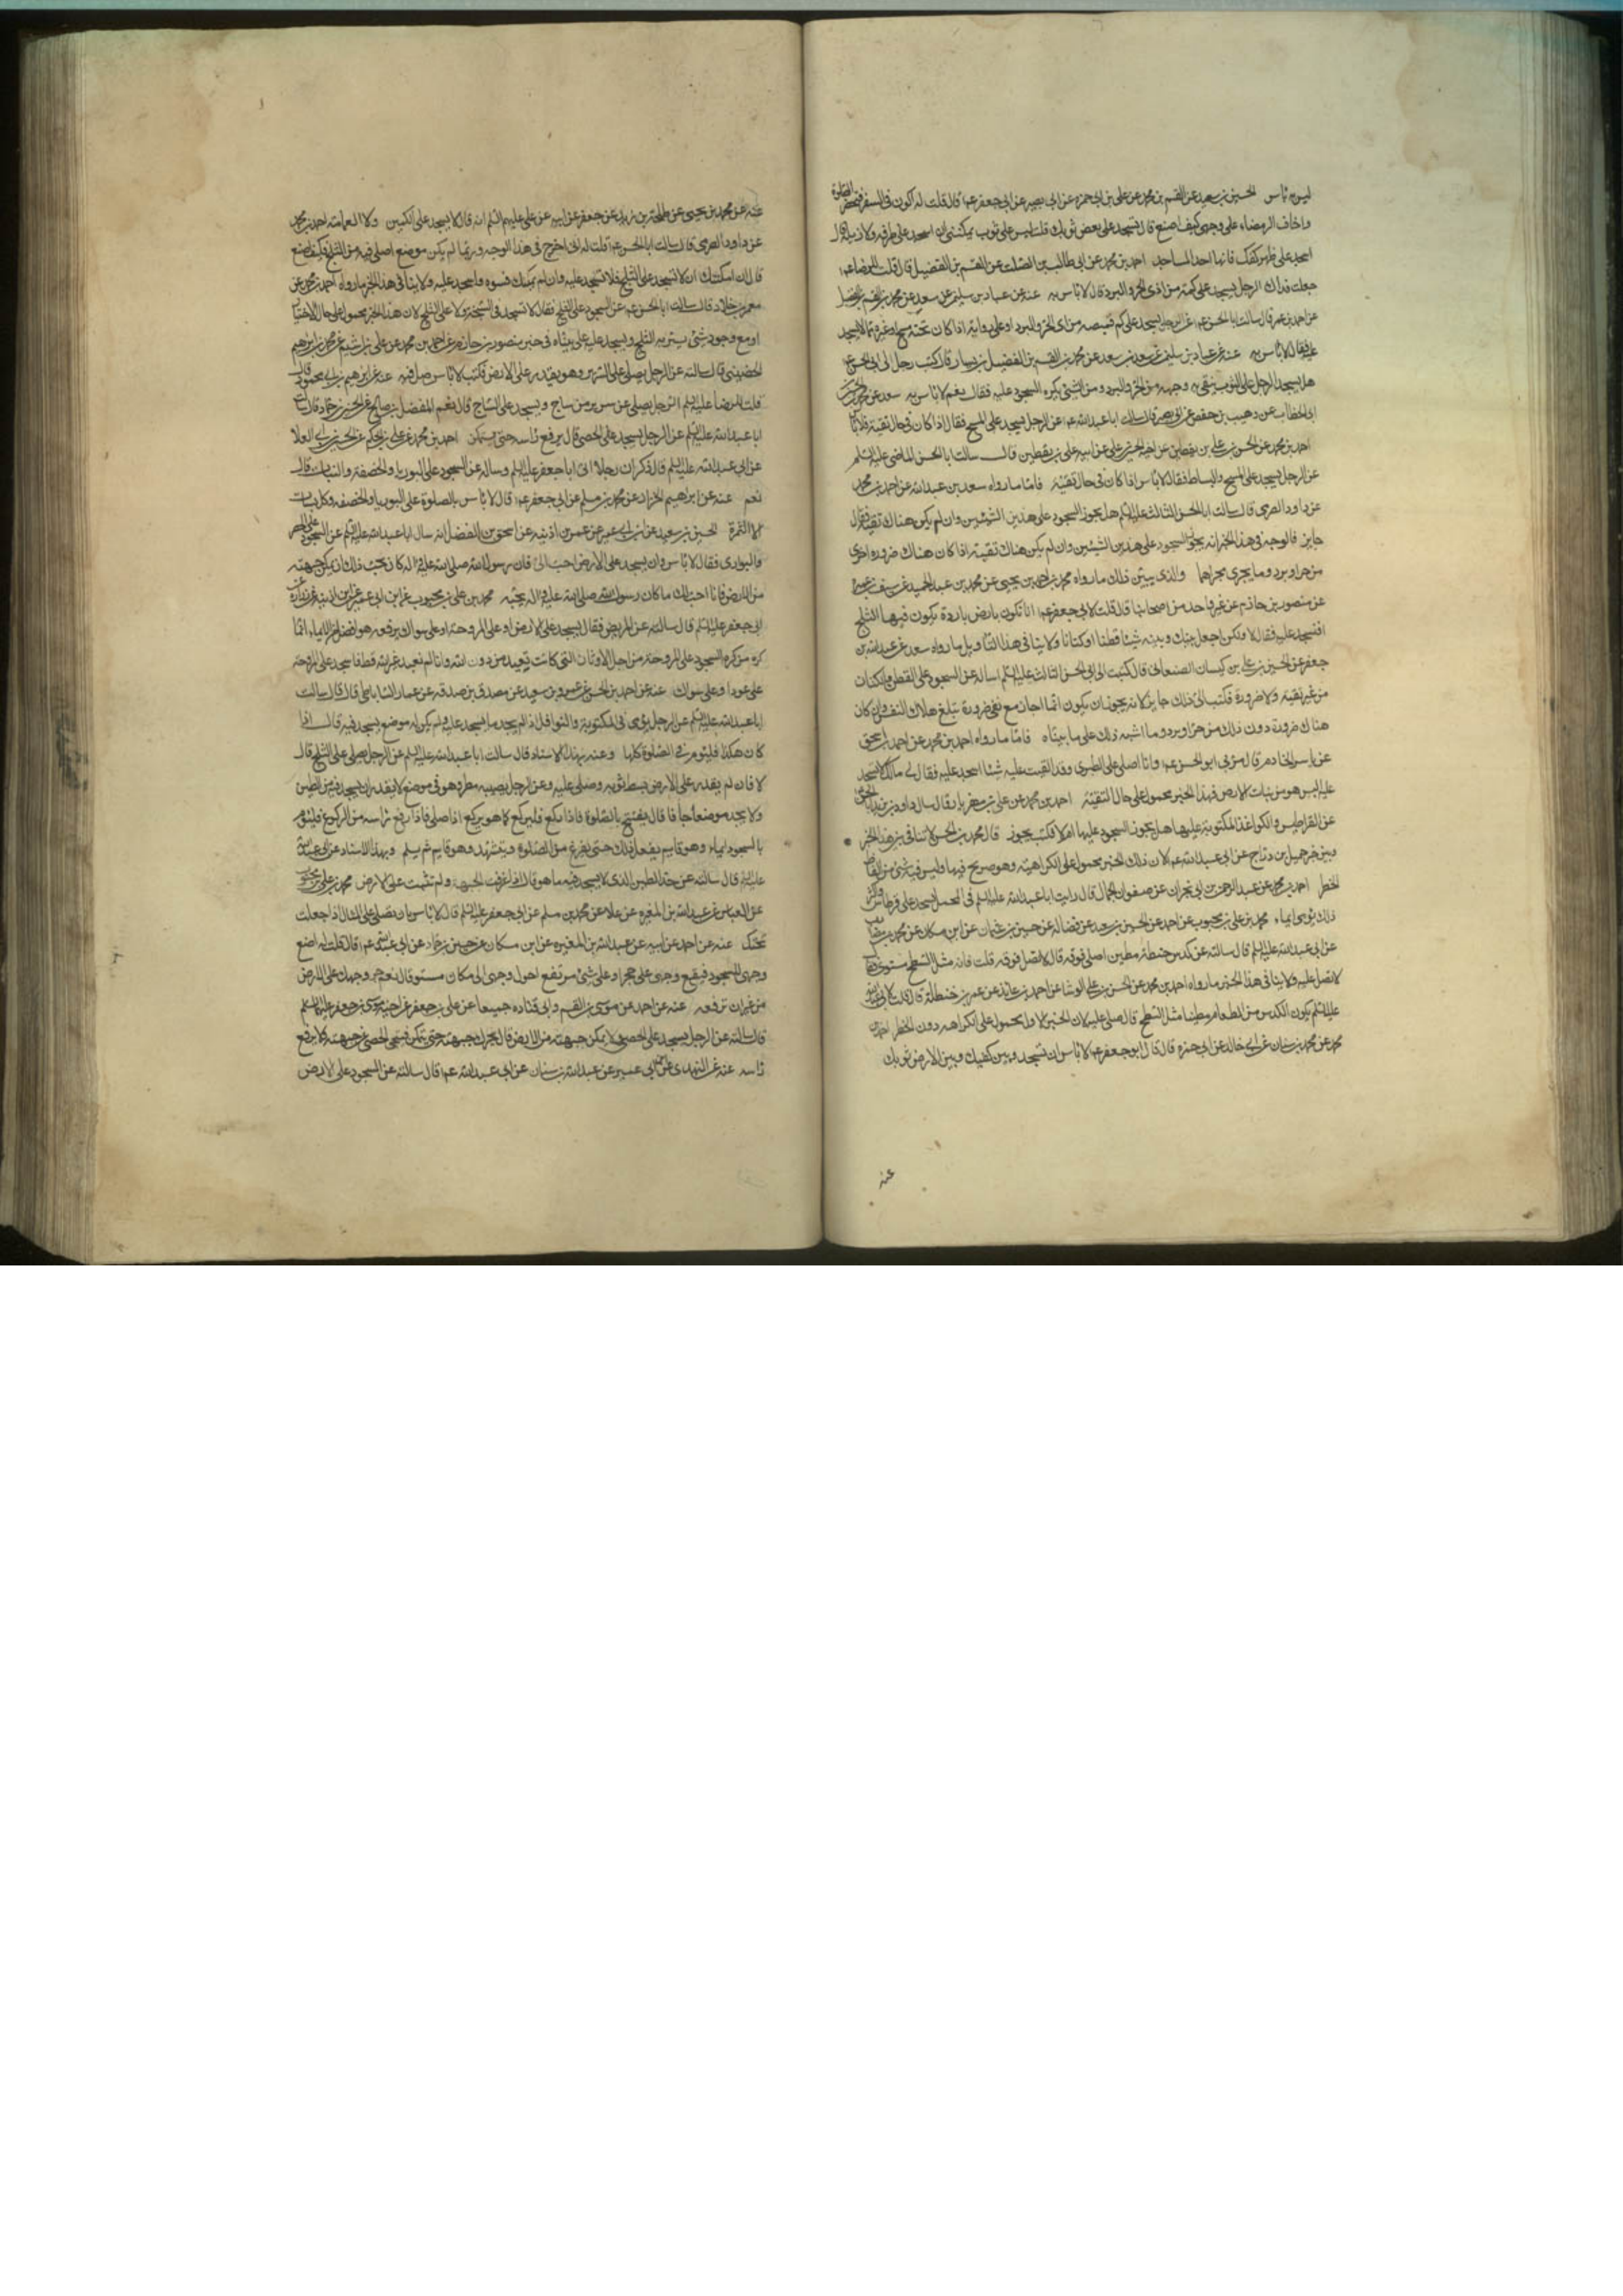 ليس به باس الحسين بن سعيد عن القسم بن محمد عن علي بن ابي حمزه عن ابي بصير عن ابي جعفر عم قال قلت له اكون في السفر فتحضر الصلوة
واخاف الرمضاء على وجهى كيف اصنع قال تسجد على بعض ثوبك قلت ليس على ثوب يمكننى ان اسجد على طرفه ولا ذيله قال
اسجد على ظهر كفك فانها احد المساجد احمد بن محمد عن ابي طالب بن الصلت عن القسم بن الفضيل قال قلت للرضا عم
جعلت فداك الرجل يسجد على كمه من اذى الحر والبرد قال لا باس به عنه عن عباد بن سليمن عن سعد عن محمد بن القسم بن الفضيل
عن احمد بن عمر قال سالت ابا الحسن عم عن الرجل يسجد على كم قميصه من اذى الحر والبرد او على ردائه اذا كان تحته مسح وغيره مما لا يسجد
عليه فقال لا باس به عنه عن عباد بن سليمن عن سعد بن سعد عن محمد بن القسم بن الفضيل بن يسار قال كتب رجل الى ابي الحسن عم
هل يسجد الرجل على الثوب يتقى به وجهه من الحر والبرد ومن الشئ يكره السجود عليه فقال نعم لا باس به سعد عن محمد بن الحسين بن
ابي الخطاب عن وهيب بن حفص عن ابي بصير قال سالت ابا عبدالله عم عن الرجل يسجد على المسح فقال اذا كان في حال تقية فلا باس
احمد بن محمد عن الحسن بن علي بن يقطين عن اخيه الحسين بن علي عن ابيه علي بن يقطين قال سالت ابا الحسن الماضى عليه السلم
عن الرجل يسجد على المسح والبساط فقال لا باس اذا كان في حال تقية فاما ما رواه سعد بن عبدالله عن احمد بن محمد
عن داود الصرمى قال سالت ابا الحسن الثالث عليه السلم هل يجوز السجود على هذين الشيئين وان لم يكن هناك تقية فقال
جايز فالوجه في هذا الخبر انه يجوز السجود على هذين الشيئين وان لم يكن هناك تقية اذا كان هناك ضرورة اخرى
من حر او برد وما يجرى مجراهما والذى يبين ذلك ما رواه محمد بن احمد بن يحيى عن محمد بن عبد الحميد عن سيف بن عميرة
عن منصور بن حازم عن غير واحد من اصحابنا قال قلت لابي جعفر عم انا نكون بارض باردة يكون فيها الثلج
افنسجد عليه فقال لا ولكن اجعل بينك وبينه شيئا قطنا او كتانا ولا ينافي هذا التاويل ما رواه سعد عن عبدالله بن
جعفر عن الحسين بن علي بن كيسان الصنعاني قال كتبت الى ابي الحسن الثالث عليه السلم اساله عن السجود على القطن والكتان
من غير تقية ولا ضرورة فكتب الى ذلك جايز لانه يجوز ان يكون انما اجاز مع نفى ضرورة تبلغ هلاك النفس وان كان
هناك ضرورة دون ذلك من حر او برد وما اشبه ذلك على ما بيناه فاما ما رواه احمد بن محمد عن احمد بن اسحق
عن ياسر الخادم قال مر بي ابو الحسن عم وانا اصلى على الطبرى وقد القيت عليه شيئا اسجد عليه فقال لى مالك لا تسجد
عليه اليس هو من نبات الارض فهذا الخبر محمول على حال التقية احمد بن محمد عن علي بن مهزيار قال سال داود بن يزيد ابا الحسن
عن القراطيس والكواغذ المكتوبة عليها هل يجوز السجود عليها ام لا فكتب يجوز قال محمد بن الحسن لا تنافى بين هذا الخبر
وبين خبر جميل بن دراج عن ابي عبدالله عم لان ذلك الخبر محمول على الكراهية وهو صريح فيها وليس فيه شئ من الفاظ
الخطر احمد بن محمد عن عبد الرحمن بن ابي نجران عن صفوان الجمال قال رايت ابا عبدالله عليه السلم في المحمل يسجد على قرطاس واكثر
ذلك يومى ايماء محمد بن علي بن محبوب عن احمد عن الحسين بن سعيد عن فضالة عن حسين بن عثمان عن ابن مسكان عن محمد بن مضارب
عن ابي عبدالله عليه السلم قال سالته عن كدس حنطة مطين اصلى فوقه قال لا تصل فوقه قلت فانه مثل السطح مستوى فقال
لا تصل عليه ولا ينافى هذا الخبر ما رواه احمد بن محمد عن الحسن بن علي الوشا عن احمد بن عايذ عن عمر بن حنظلة قال قلت لابي عبدالله
عليه السلم يكون الكدس من الطعام مطينا مثل السطح قال صلى عليه لان الخبر الاول محمول على الكراهيه دون الخطر احمد بن
محمد عن محمد بن سنان عن ابي خالد عن ابي حمزه قال قال ابو جعفر عم لا باس ان تسجد وبين كفيك وبين الارض ثوبك
عنه
عنه عن محمد بن يحيى عن طلحة بن زيد عن جعفر عن ابيه عن علي عليهم السلم انه قال لا يسجد على الكمين ولا العمامة احمد بن محمد
عن داود الصرمى قال سالت ابا الحسن عم قلت له انى اخرج في هذا الوجه وربما لم يكن موضع اصلى فيه من الثلج فكيف اصنع
قال ان امكنك ان لا تسجد على الثلج فلا تسجد عليه وان لم يمكنك فسوه واسجد عليه ولا ينافى هذا الخبر ما رواه احمد بن محمد عن
معمر بن خلاد قال سالت ابا الحسن عم عن السجود على الثلج فقال لا تسجد في السبخة ولا على الثلج لان هذا الخبر محمول على حال الاختيار
او مع وجود شئ يستر به الثلج ويسجد عليه على ما بيناه في خبر منصور بن حازم عن احمد بن محمد عن علي بن الريان عن محمد بن ابراهيم
الحضينى قال سالته عن الرجل يصلى على السرير وهو يقدر على الارض فكتب لا باس صل فيه عنه عن ابرهيم بن ابي محمود قال
قلت للرضا عليه السلم الرجل يصلى على سرير من ساج ويسجد على الساج قال نعم المفضل بن صالح عن الحسين بن حماد قال سالت
ابا عبدالله عليه السلم عن الرجل يسجد على الحصى قال يرفع راسه حتى يستمكن احمد بن محمد عن علي بن الحكم عن الحسين بن ابي العلا
عن ابي عبدالله عليه السلم قال ذكر ان رجلا اتى ابا جعفر عليه السلم وساله عن السجود على البوريا والخصفة والنبات قال
نعم عنه عن ابراهيم الخزاز عن محمد بن مسلم عن ابي جعفر عم قال لا باس بالصلوة على البوريا والخصفه وكل نبات
الا الثمرة الحسين بن سعيد عن ابن ابي عمير عن عمر بن اذنيه عن اسحق بن الفضل انه سال ابا عبدالله عليه السلم عن السجود على الحصر
والبوارى فقال لا باس وان يسجد على الارض احب الى فان رسول الله صلى الله عليه واله كان يحب ذلك ان يمكن جبهته
من الارض فانا احب لك ما كان رسول الله صلى الله عليه واله يحبه محمد بن علي بن محبوب عن ابن ابي عمير عن ابن اذنية عن زرارة عن
ابي جعفر عليه السلم قال سالته عن المريض فقال يسجد على الارض او على المروحة او على سواك يرفعه هو افضل من الايماء انما
كره من كره السجود على المروحة من اجل الاوثان التى كانت تعبد من دون الله وانا لم نعبد غير الله قط فاسجد على المروحة
على عود او على سواك عنه عن احمد بن الحسن عن عمرو بن سعيد عن مصدق بن صدقه عن عمار الساباطى قال قال سالت
ابا عبدالله عليه السلم عن الرجل يومى في المكتوبة والنوافل اذا لم يجد ما يسجد عليه ولم يكن له موضع يسجد فيه قال اذا
كان هكذا فليوم في الصلوة كلها وعنه بهذا الاسناد قال سالت ابا عبدالله عليه السلم عن الرجل يصلى على الثلج قال
لا فان لم يقدر على الارض بسط ثوبه وصلى عليه وعن الرجل يصيبه مطر وهو في موضع لا يقدر ان يسجد فيه من الطين
ولا يجد موضعا جافا قال يفتتح الصلوة فاذا ركع فليركع كما هو يركع اذا صلى فاذا رفع راسه من الركوع فليوم
بالسجود ايماء وهو قايم يفعل ذلك حتى يفرغ من الصلوة ويتشهد وهو قايم ثم يسلم وبهذا الاسناد عن ابي عبدالله
عليه السلم قال سالته عن حد الطين الذى لا يسجد فيه ما هو قال اذا غرقت الجبهة ولم تثبت على الارض محمد بن علي بن محبوب
عن العباس عن عبدالله بن المغيره عن علا عن محمد بن مسلم عن ابي جعفر عليه السلم قال لا باس بان تصلى على المثال اذا جعلت
تحتك عنه عن احمد عن ابيه عن عبدالله بن المغيره عن ابن مسكان عن حسين بن حماد عن ابي عبدالله عم قال قلت له اضع
وجهى للسجود فيقع وجهى على حجر او على شئ مرتفع احول وجهى الى مكان مستو قال نعم جر وجهك على الارض
من غير ان ترفعه عنه عن احمد عن موسى بن القسم وابى قتاده جميعا عن علي بن جعفر عن اخيه موسى بن جعفر عليهما السلم
قال سالته عن الرجل يسجد على الحصى لا يمكن جبهته من الارض قال يحرك جبهته حتى يمكن فينحى الحصى عن جبهته ولا يرفع
راسه عنه عن النهدى عن ابن ابي عمير عن عبدالله بن سنان عن ابي عبدالله عم قال سالته عن السجود على الارض